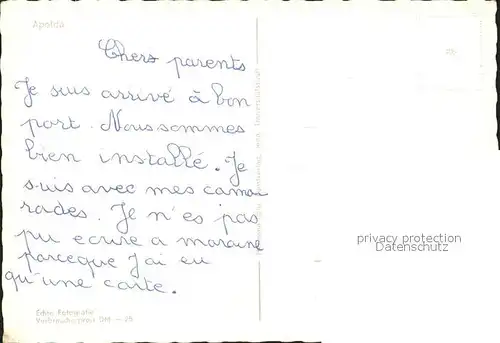 Apolda
Chers parents
Je suis arrivé à bon
port. Nous sommes
bien installé. Je
suis avec mes cama-
rades. Je n'es pas
pu ecrire a maraine
parceque j'ai eu
qu'une carte.
privacy protection
Datenschutz